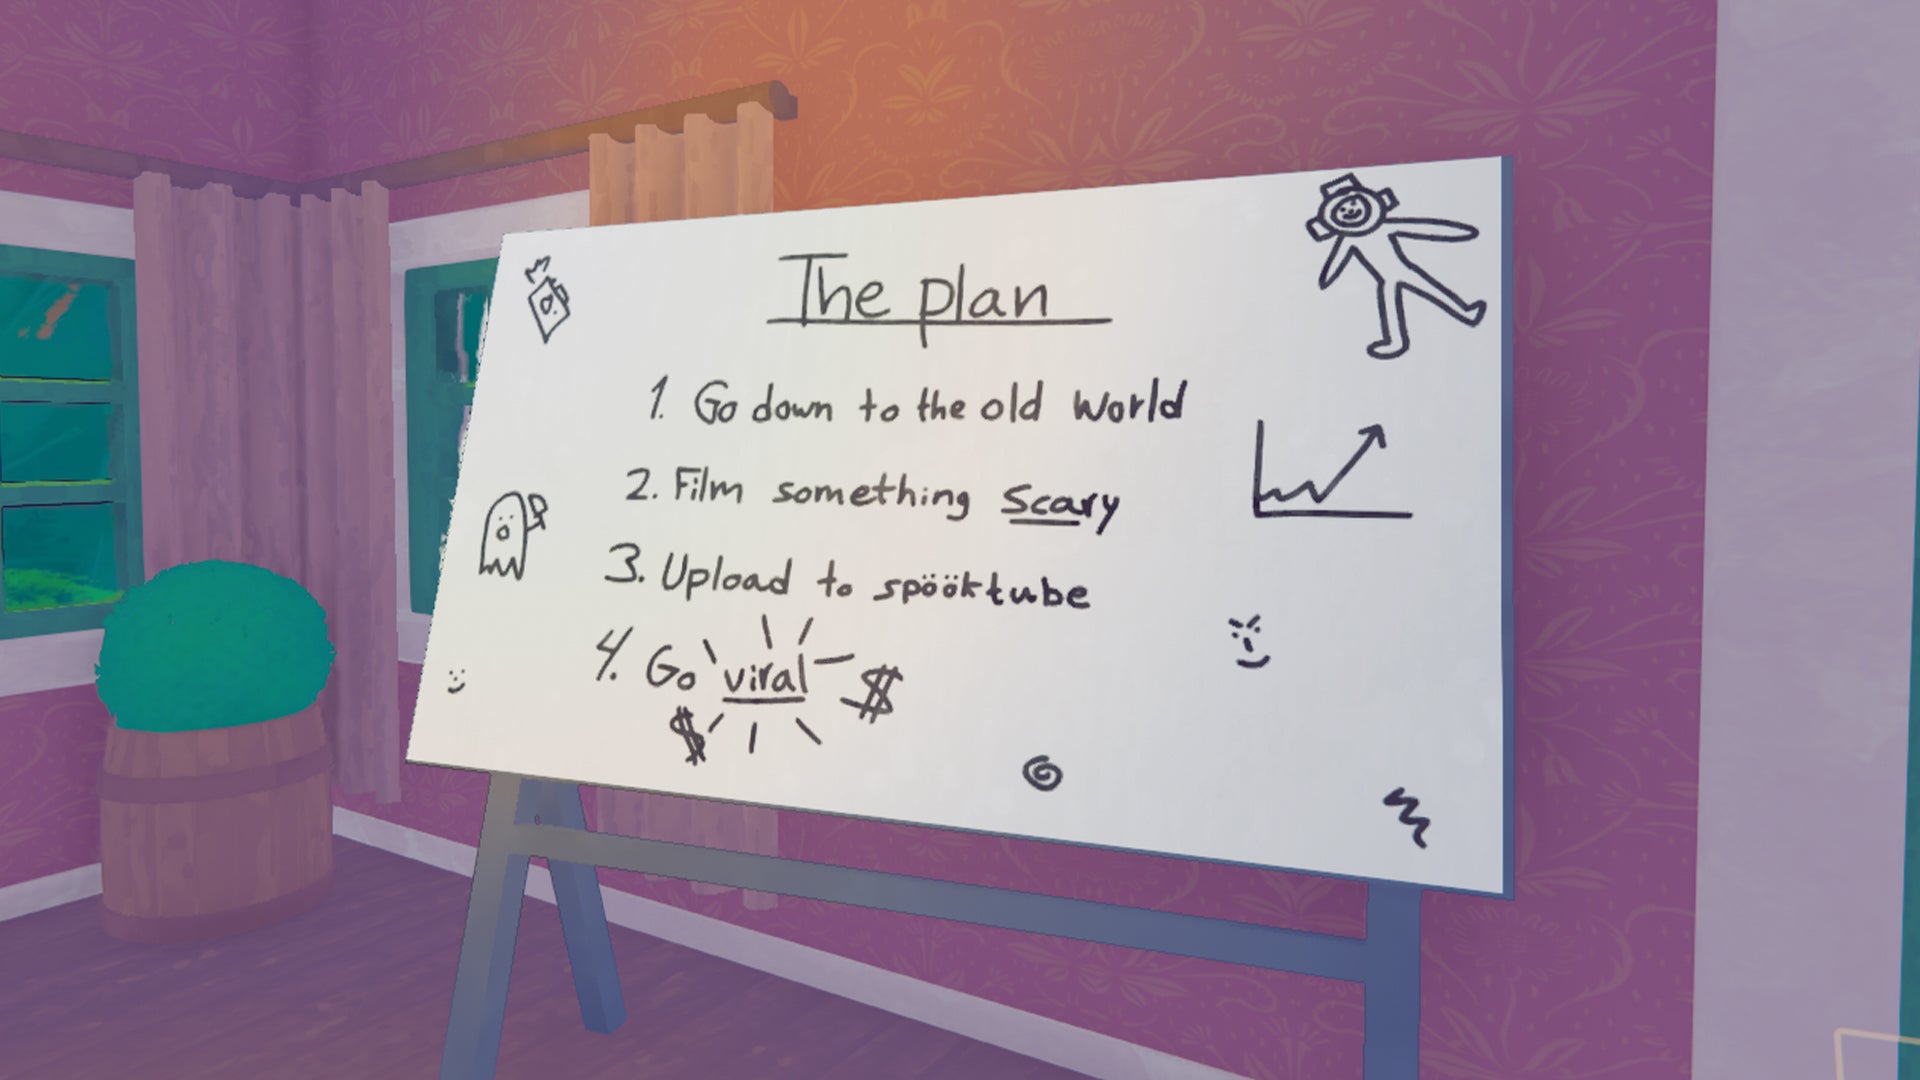 The plan
1. Go down to the old world
2. Film something scary
3. Upload to spööktube
4. Go viral $
$